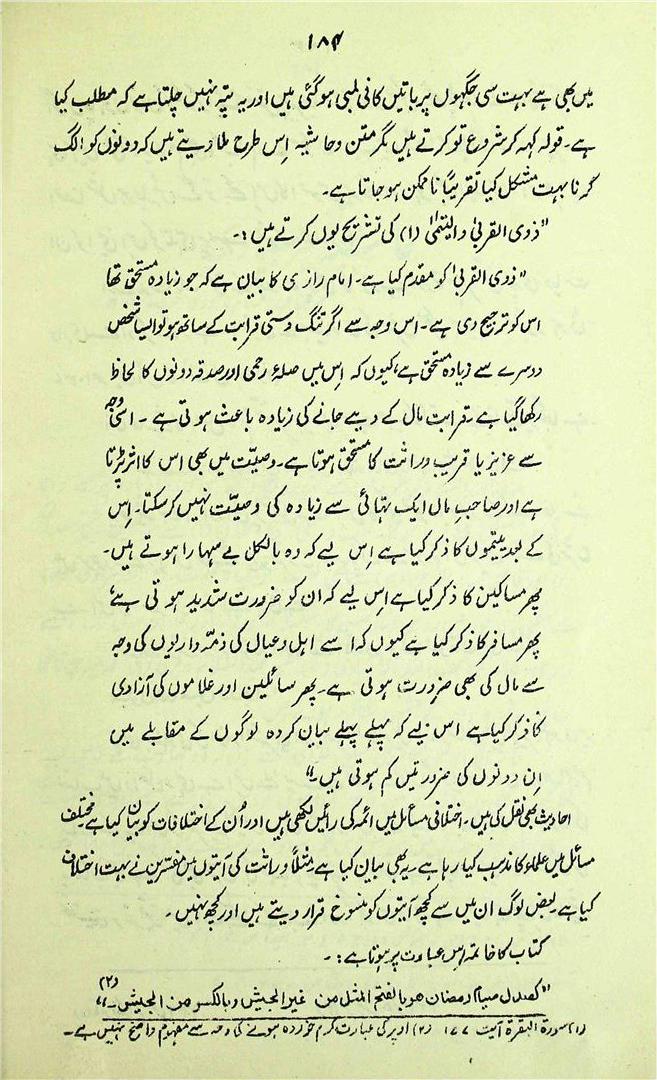 ۱۸۴
میں بھی ہے بہت سی جگہوں پر باتیں کافی لمبی ہو گئی ہیں اور یہ پتہ نہیں چلتا ہے کہ مطلب کیا
ہے۔ قولہ کہہ کر شروع تو کرتے ہیں مگر متن و حاشیہ اِس طرح ملا دیتے ہیں کہ دونوں کو الگ
کرنا بہت مشکل کیا تقریباً ناممکن ہو جاتا ہے۔
"ذوی القربیٰ والیتمیٰ (۱) کی تشریح یوں کرتے ہیں:۔
"ذوی القربیٰ کو مقدم کیا ہے۔ امام رازی کا بیان ہے کہ جو زیادہ مستحق تھا
اس کو ترجیح دی ہے۔ اس وجہ سے اگر تنگ دستی قرابت کے ساتھ ہو تو ایسا شخص
دوسرے سے زیادہ مستحق ہے، کیوں کہ اِس میں صلۂ رحمی اور صدقہ دونوں کا لحاظ
رکھا گیا ہے۔ قرابت مال کے دیے جانے کی زیادہ باعث ہوتی ہے۔ اسی وجہ
سے عزیز یا قریب وراثت کا مستحق ہوتا ہے۔ وصیّت میں بھی اس کا اثر پڑتا
ہے اور صاحبِ مال ایک تہائی سے زیادہ کی وصیّت نہیں کر سکتا۔ اِس
کے بعد یتیموں کا ذکر کیا ہے اِس لیے کہ وہ بالکل بے سہارا ہوتے ہیں۔
پھر مساکین کا ذکر کیا ہے اس لیے کہ ان کو ضرورت شدید ہوتی ہے،
پھر مسافر کا ذکر کیا ہے کیوں کہ اسے اہل و عیال کی ذمّہ داریوں کی وجہ
سے مال کی بھی ضرورت ہوتی ہے۔ پھر سائلین اور غلاموں کی آزادی
کا ذکر کیا ہے اس لیے کہ پہلے پہلے بیان کردہ لوگوں کے مقابلے میں
اِن دونوں کی ضرورتیں کم ہوتی ہیں۔"
احادیث بھی نقل کی ہیں۔ اختلافی مسائل میں ائمہ کی رائیں لکھی ہیں اور اُن کے اختلافات کو بیان کیا ہے مختلف
مسائل میں علماء کا مذہب کیا رہا ہے۔ یہ بھی بیان کیا ہے مثلاً وراثت کی آیتوں میں مفسّرین نے بہت اختلاف
کیا ہے۔ بعض لوگ ان میں سے کچھ آیتوں کو منسوخ قرار دیتے ہیں اور کچھ نہیں۔
کتاب کا خاتمہ اِس عبارت پر ہوتا ہے:۔
"کصدل رمضان ھو بالفتح المثل من غیر الجیش وبالکسر من الجیش۔" (۲)
(۱) سورۃ البقرۃ آیت ۱۷۷ (۲) اوپر کی عبارت کرم خوردہ ہونے کی وجہ سے مفہوم واضح نہیں ہے۔